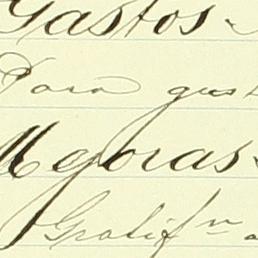 Gastos
Para gast
Mejoras
Gratifn